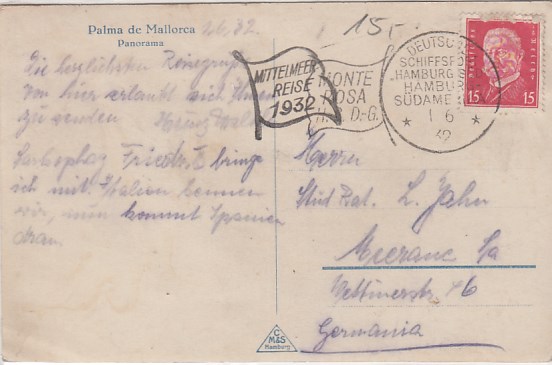 Palma de Mallorca
Panorama
Die herzlichsten Reisegrüße
von hier erlaubt sich Ihnen
zu senden
Sarkophag Friedr. II bringe
ich mit. Italien kennen
wir, nun kommt Spanien
dran.
MITTELMEER
REISE
1932
MONTE
ROSA
H. D.-G.
DEUTSCHE
SCHIFFSPOST
HAMBURG
HAMBURG
SÜDAMERIKA
* 1 6 *
32
15
15
15
Herrn
Stud Rat. L. Jahn
Meerane Sa
Wettinerstr 46
Germania
C
M&S
Hamburg